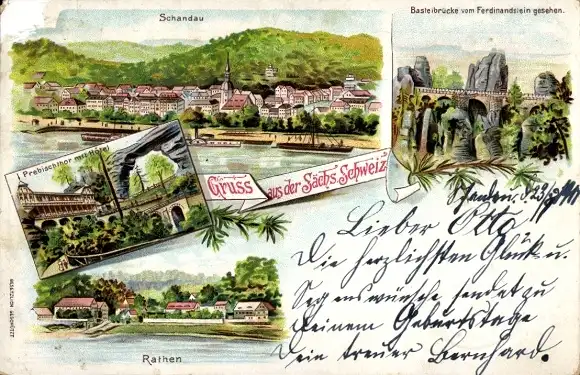 Schandau
Basteibrücke vom Ferdinandstein gesehen.
Prebischthor mit Hotel
Gruss aus der Sächs. Schweiz
Schandau, d.
Lieber Otto
Die herzlichsten Glück- u.
Segenswünsche sendet zu
Deinem Geburtstage
Dein treuer Bernhard.
Rathen